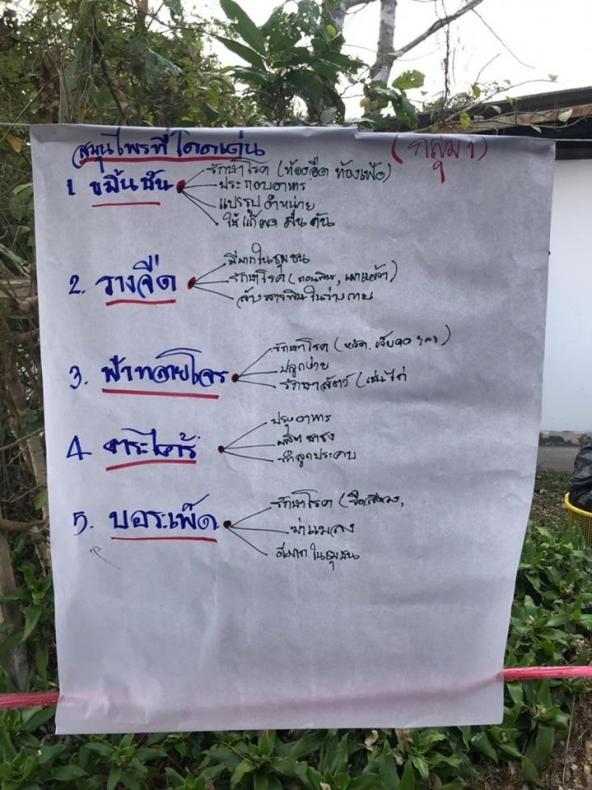 สมุนไพรที่โดดเด่น (กลุ่ม 1)
1 ขมิ้นชัน
รักษาโรค (ท้องอืด ท้องเฟ้อ)
ประกอบอาหาร
แปรรูป จำหน่าย
ให้ แก้ผด ผื่นคัน
2. รางจืด
มีมากในชุมชน
รักษาโรค (ถอนพิษ, เมาเหล้า)
ล้างสารพิษในร่างกาย
3. ฟ้าทลายโจร
รักษาโรค (หวัด, เจ็บคอ
ปลูกง่าย
รักษาสัตว์ (เช่น ไก่
4. ตะไคร้
ปรุงอาหาร
ผลิต
ทำลูกประคบ
5. บอระเพ็ด
รักษาโรค
ฆ่าแมลง
มีมากในชุมชน